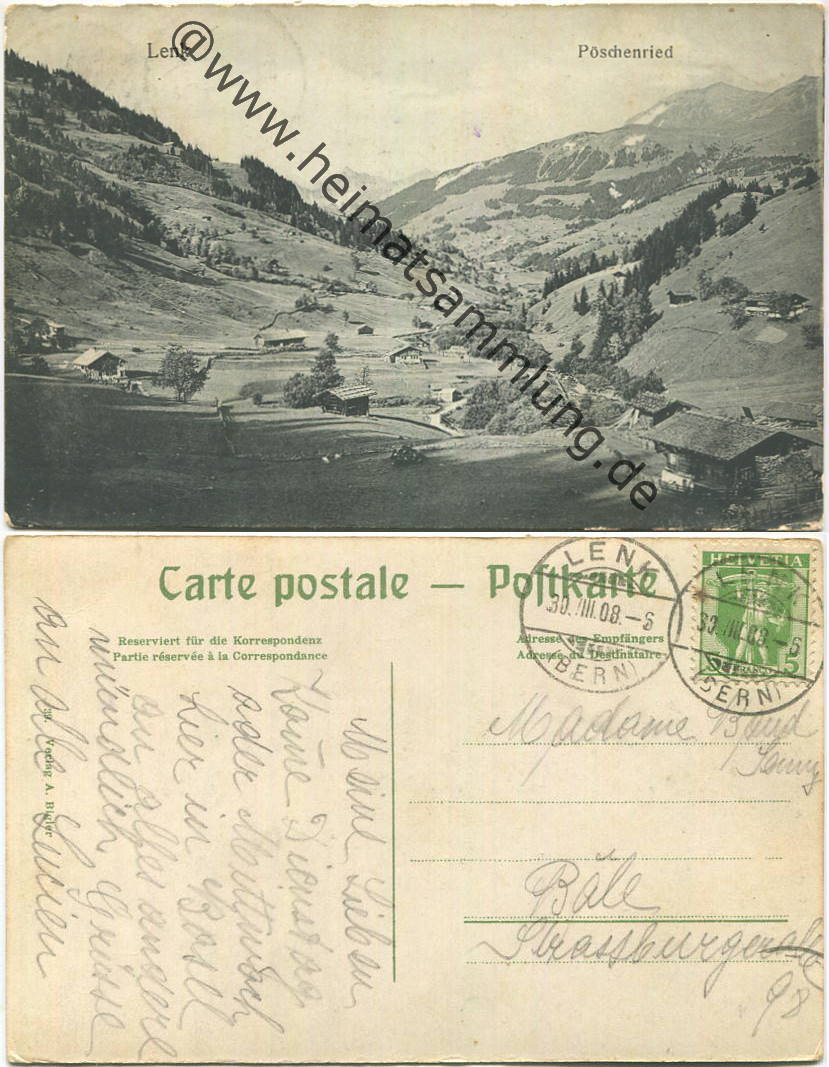 Lenk
Pöschenried
@www.heimatsammlung.de
Carte postale — Postkarte
Reserviert für die Korrespondenz
Partie réservée à la Correspondance
Adresse des Empfängers
Adresse du Destinataire
LENK
30.III.08.-6
(BERN)
HELVETIA
5
LENK
30.III.08-6
(BERN)
Madame
Jenny
Bâle
Strassburgerallee
98
Meine Lieben
Komme Dienstag
oder Mittwoch
hier in Basel
an alles andere
mündlich Grüsse
an alle Lucien
39. Verlag A. Bigler